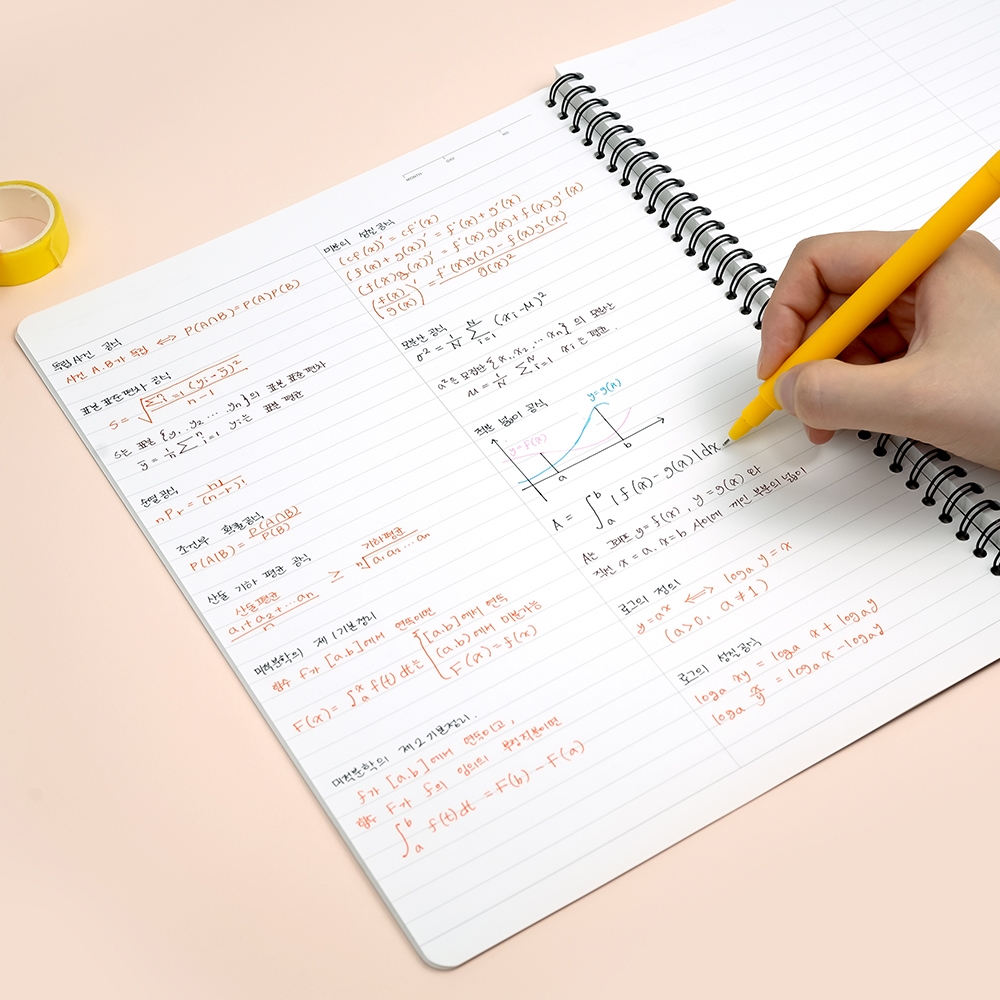 MONTH DAY NO
독립사건 공식
사건 A.B가 독립 ⟺ P(A∩B)=P(A)P(B)
표본표준편차 공식
S = √(Σⁿᵢ₌₁(yᵢ-ȳ)² / n-1)
S는 표본 {y₁ y₂ ... yₙ}의 표본 표준편차
ȳ = 1/n Σⁿᵢ₌₁ yᵢ는 표본 평균
순열공식
nPr = n! / (n-r)!
조건부 확률공식
P(A|B) = P(A∩B) / P(B)
산술 기하 평균 공식
산술평균 기하평균
a₁+a₂+...aₙ / n ≥ ⁿ√a₁a₂...aₙ
미적분학의 제1기본정리
함수 f가 [a.b]에서 연속이면
F(x) = ∫ₐˣ f(t)dt는 { [a.b]에서 연속
(a.b)에서 미분가능
F'(x) = f(x)
미적분학의 제2기본정리.
f가 [a.b]에서 연속이고,
함수 F가 f의 임의의 부정적분이면
∫ₐᵇ f(t)dt = F(b) - F(a)
미분의 성질공식
(cf(x))' = cf'(x)
(f(x)+g(x))' = f'(x)+g'(x)
(f(x)g(x))' = f'(x)g(x)+f(x)g'(x)
(f(x)/g(x))' = f'(x)g(x)-f(x)g'(x) / g(x)²
모분산 공식
σ² = 1/N Σᴺᵢ₌₁ (xᵢ-M)²
σ²은 모집단 {x₁,x₂,...xₙ}의 모분산
M = 1/N Σᴺᵢ₌₁ xᵢ는 평균.
적분 넓이 공식
y=g(x)
y=f(x)
a b
A = ∫ₐᵇ |f(x)-g(x)|dx
A는 그래프 y=f(x), y=g(x)와
직선 x=a, x=b 사이에 끼인 부분의 넓이
로그의 정의
y=aˣ ⟺ logₐy=x
(a>0, a≠1)
로그의 성질공식
logₐxy = logₐx+logₐy
logₐx/y = logₐx-logₐy